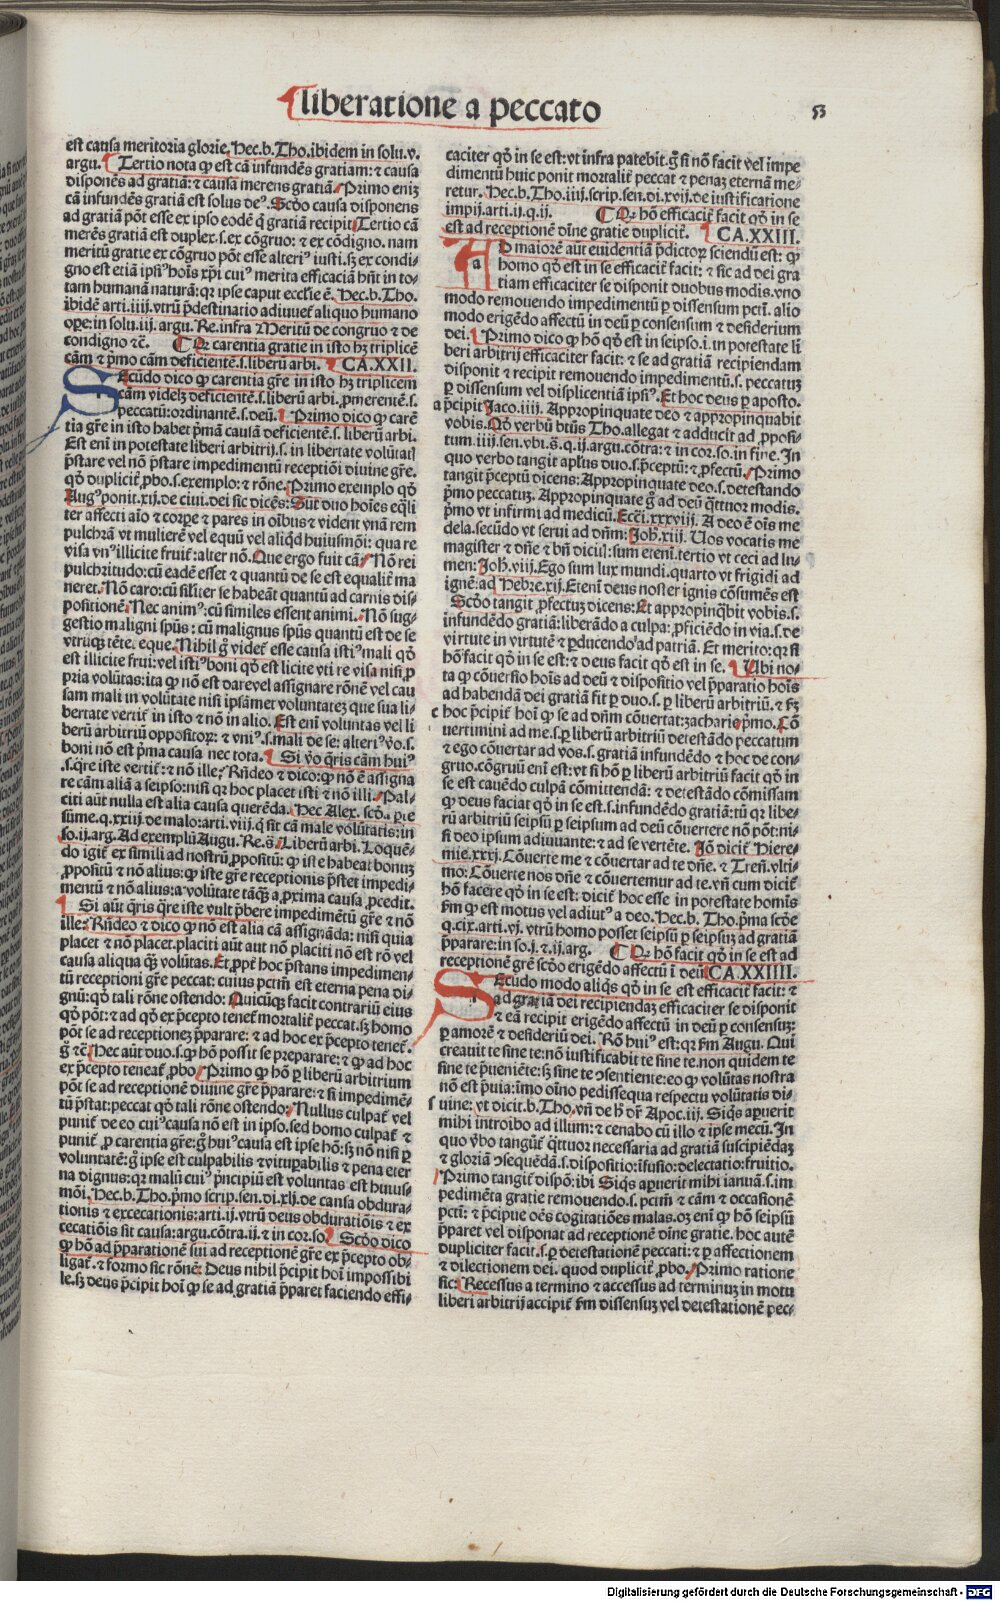 liberatione a peccato
53
est causa meritoria glorie. Hec.b.Tho.ibidem in solu.v.
argu. Tertio nota ꝙ est cā infundēs gratiam: ⁊ causa
disponēs ad gratiā: ⁊ causa merens gratiā. Primo eniꝫ
cā infundēs gratiā est solus deꝰ. Scd́o causa disponens
ad gratiā pōt esse ex ipso eodē ꝗ gratiā recipit. Tertio cā
merēs gratiā est duplex.s.ex cōgruo: ⁊ ex cōdigno. nam
meritū gratie ex cōgruo pōt esse alteriꝰ iusti.sꝫ ex condi-
gno est etiā ipsiꝰ hoīs xp̄i cuiꝰ merita efficaciā hn̄t in to-
tam humanā naturā: qꝛ ipse caput ecclie ē. Hec.b.Tho.
ibidē arti.iiii.vtrū p̄destinatio adiuuet̄ aliquo humano
ope: in solu.iij. argu. Re.infra Meritū de congruo ⁊ de
condigno ⁊c̄. ¶ Qꝛ carentia gratie in isto hꝫ triplicē
cām ⁊ pᷓmo cām deficientē.s.liberū arbi. ¶ CA.XXII.
SEcūdo dico ꝙ carentia gr̄e in isto hꝫ triplicem
cām videlꝫ deficientē.s.liberū arbi. ꝓmerentē.s.
peccatū: ordinantē.s.deū. ¶ Primo dico ꝙ carē
tia gr̄e in isto habet pᷓmā causā deficientē.s. liberū arbi.
Est eni in potestate liberi arbitrij.s. in libertate volūtatꝭ
p̄stare vel nō p̄stare impedimentū receptiōi diuine gr̄e.
qd̓ duplicit̓ ꝓbo.s.exemplo: ⁊ rōne. Primo exemplo qd̓
Augꝰ ponit.xij.de ciui.dei sic dicēs: Sūt duo hoīes eq̄li
ter affecti aīo ⁊ corpe ⁊ pares in oībus ⁊ vident vnā rem
pulchrā vt mulierē vel equū vel aliqd̓ huiusmōi: qua re
visa vnꝰ illicite fruit̄: alter nō. Que ergo fuit cā? Nō rei
pulchritudo: cū eadē esset ⁊ quantū de se est equalit̄ ma
neret. Nō caro: cū silīter se habeāt quantū ad carnis dis-
positionē. Nec animꝰ: cū similes essent animi. Nō sug-
gestio maligni sp̄us: cū malignus sp̄us quantū est de se
vtrūqꝫ tēte. eque. Nihil g̊ videt̄ esse causa istiꝰ mali qd̓
est illicite frui: vel istiꝰ boni qd̓ est licite vti re visa nisi ꝓ
pria volūtas: ita ꝙ nō est dare vel assignare rōnē vel cau
sam mali in volūtate nisi ipsāmet voluntateꝫ que sua li-
bertate vertit̄ in isto ⁊ nō in alio. Est enī voluntas vel li
berū arbitriū oppositoꝝ: ⁊ vniꝰ.s.mali de se: alteriꝰ v̓o.s.
boni nō est pᷓma causa nec tota. ¶ Si v̓o q̄ris cām huiꝰ
.s.q̄re iste vertit̄: ⁊ nō ille: Rn̄deo ⁊ dico: ꝙ nō ē assigna
re cām aliā a seipso: nisi qꝛ hoc placet isti ⁊ nō illi. Pal-
citi aūt nulla est alia causa querēda. Hec Alex. scd̓a. p̄te
sūme.q.xxiij.de malo: arti.viij.q̄ sit cā male volūtatis: in
so.ij.arg. Ad exemplū Augu. Re.s̄. Liberū arbi. Loquē-
do igit̄ ex simili ad nostrū ꝓpositū: ꝙ iste habeat bonuꝫ
ꝓpositū ⁊ nō alius: ꝙ iste gr̄e receptionis p̄stet impedi-
mentū ⁊ nō alius: a volūtate tāqꝫ̄ a ꝓxima causa ꝓcedit.
¶ Si aūt q̄ris q̄re iste vult p̄bere impedimētū gr̄e ⁊ nō
ille: Rn̄deo ⁊ dico ꝙ nō est alia cā assignāda: nisi quia
placet ⁊ nō placet. placiti aūt aut nō placiti nō est rō vel
causa aliqua qꝫ̄ volūtas. Et ꝓpt̓ hoc p̄stans impedimen-
tū receptioni gr̄e peccat: cuius pctm̄ est eterna pena di-
gnū: qd̓ tali rōne ostendo: Quicūqꝫ facit contrariū eius
qd̓ pōt: ⁊ ad qd̓ ex p̄cepto tenet̄ mortalit̓ peccat. sꝫ homo
pōt se ad receptioneꝫ p̄parare: ⁊ ad hoc ex p̄cepto tenet̄.
g̊ ⁊c̄. Hec aūt duo.s.ꝙ hō possit se preparare: ⁊ ꝙ ad hoc
ex p̄cepto teneat̄ ꝓbo. Primo ꝙ hō ꝑ liberū arbitrium
pōt se ad receptionē diuine gr̄e p̄parare: ⁊ si impedimē-
tū p̄stat: peccat qd̓ tali rōne ostendo: Nullus culpat̄ vel
punit̄ de eo cuiꝰ causa nō est in ipso. sed homo culpat̄ ⁊
punit̄ ꝓ carentia gr̄e: g̊ huiꝰ causa est ipse hō: sꝫ nō nisi ꝑ
voluntatē: g̊ ipse est culpabilis ⁊ vituꝑabilis ⁊ pena eter
na dignus: qꝛ malū cuiꝰ p̄ncipiū est voluntas est huius-
mōi. Hec.b.Tho.pᷓmo scrip.sen.di.xlj.de causa obdura-
tionis ⁊ excecationis: arti.ij.vtrū deus obduratiōis ⁊ ex
cecatiōis sit causa: argu.cōtra.ij.⁊ in cor.so. ¶ Scd̓o dico
ꝙ hō ad p̄parationē sui ad receptionē gr̄e ex p̄cepto ob-
ligat̄. ⁊ formo sic rōnē: Deus nihil p̄cipit hoī impossibi
le. sꝫ deus p̄cipit hoī ꝙ se ad gratiā p̄paret faciendo effi-
caciter qd̓ in se est: vt infra patebit. g̊ si nō facit vel impe
dimētū huic ponit mortalit̓ peccat ⁊ penaꝫ eternā me-
retur. Hec.b.Tho.iiij.scrip.sen.di.xvij.de iustificatione
impij.arti.ij.q.ij. ¶ Qꝛ hō efficacit̓ facit qd̓ in se
est ad receptionē diīne gratie duplicit̓. ¶ CA.XXIII.
AD maiorē aūt euidentiā p̄dictoꝝ sciendū est: ꝙ
a
homo qd̓ est in se efficacit̓ facit: ⁊ sic ad dei gra
tiam efficaciter se disponit duobus modis. vno
modo remouendo impedimentū ꝑ dissensum pctī. alio
modo erigēdo affectū in deū ꝑ consensum ⁊ desiderium
dei. ¶ Primo dico ꝙ hō qd̓ est in seipso.i.in potestate li
beri arbitrij efficaciter facit: ⁊ se ad gratiā recipiendam
disponit ⁊ recipit remouendo impedimentū.s. peccatuꝫ
ꝑ dissensum vel displicentiā ipsiꝰ. Et hoc deus ꝑ aposto.
a p̄cipit Jaco.iiij. Appropinquate deo ⁊ appropinquabit
vobis. Qd̓ verbū btūs Tho.allegat ⁊ adducit ad ꝓposi-
tum.iiij.sen.vbi.s̄.q.ij.argu.cōtra: ⁊ in cor.so.in fine. In
quo verbo tangit apl̓us duo.s.p̄ceptū: ⁊ ꝓfectū. Primo
tangit p̄ceptū dicens: Appropinquate deo.s.detestando
pᷓmo peccatuꝫ. Appropinquate g̊ ad deū q̄ttuor modis.
pᷓmo vt infirmi ad medicū. Ecci.xxxviij. A deo ē oīs me
dela. secūdo vt serui ad dn̄m: Joh̄.xiij. Uos vocatis me
magister ⁊ dn̄e ⁊ bn̄ diciꝭ: sum etenī. tertio vt ceci ad lu-
men: Joh̄.viij. Ego sum lux mundi. quarto vt frigidi ad
ignē: ad Hebre.xij. Etenī deus noster ignis cōsumēs est
Scd̓o tangit ꝓfectuꝫ dicens: Et appropinq̄bit vobis.s.
infundēdo gratiā: liberādo a culpa: ꝓficiēdo in via.s.de
virtute in virtutē ⁊ ꝑducendo ad patriā. Et merito: qꝛ si
hō facit qd̓ in se est: ⁊ deus facit qd̓ est in se. ¶ Ubi no-
ta ꝙ cōuersio hoīs ad deū ⁊ dispositio vel p̄paratio hoīs
ad habendā dei gratiā fit ꝑ duo.s. ꝑ liberū arbitriū. ⁊ ẜꝫ
c hoc p̄cipit̄ hoī ꝙ se ad dn̄m cōuertat: zacharie pᷓmo. Cō
uertimini ad me.s.ꝑ liberū arbitriū detestādo peccatum
⁊ ego cōuertar ad vos.s. gratiā infundēdo ⁊ hoc de con-
gruo. cōgruū enī est: vt si hō ꝑ liberū arbitriū facit qd̓ in
se est cauēdo culpā cōmittendā: ⁊ detestādo cōmissam
ꝙ deus faciat qd̓ in se est.s.infundēdo gratiā: tū qꝛ libe-
rū arbitriū seipsū ꝑ seipsum ad deū cōuertere nō pōt: ni-
si deo ipsum adiuuante: ⁊ ad se vertēte. Jō dicit̄ Hiere-
mie.xxxj. Cōuerte me ⁊ conuertar ad te dn̄e. ⁊ Tren̄.vlti-
mo: Cōuerte nos dn̄e ⁊ cōuertemur ad te. vn̄ cum dicit̄
hō facere qd̓ in se est: dicit̄ hoc esse in potestate homīs
ẜm ꝙ est motus vel adiutꝰ a deo. Hec.b. Tho.pᷓma scd̓e
q.cix.arti.vj. vtrū homo posset seipsū ꝑ seipsuꝫ ad gratiā
p̄parare: in so.j.⁊.ij.arg. ¶ Qꝛ hō facit qd̓ in se est ad
receptionē gr̄e scd̓o erigēdo affectū ī deū CA.XXIIII.
SEcūdo modo aliq̄s qd̓ in se est efficacit̓ facit: ⁊
ad gratia dei recipiendaꝫ efficaciter se disponit
⁊ eā recipit erigēdo affectū in deū ꝑ consensuꝫ:
ꝑ amorē ⁊ desideriū dei. Rō huiꝰ est: qꝛ ẜm Augu. Qui
creauit te sine te: nō iustificabit te sine te. non quidem te
sine te p̄ueniēte: sꝫ sine te ↄsentiente: eo ꝙ volūtas nostra
nō est p̄uia: īmo oīno pedissequa respectu volūtatis di-
f uine: vt dicit.b.Tho. vn̄ de h̓ dr̄ Apoc.iij. Siq̄s aꝑuerit
mihi introibo ad illum: ⁊ cenabo cū illo ⁊ ipse mecū. In
quo v̓bo tangūt̄ q̄ttuor necessaria ad gratiā suscipiēdaꝫ
⁊ gloriā ↄsequēdā.s.dispositio: īfusio: delectatio: fruitio.
Primo tangit̄ dispō: ibi Siq̄s aꝑuerit mihi ianuā.s.im
pedimēta gratie remouendo.s. pctm̄ ⁊ cām ⁊ occasionē
pctī: ⁊ p̄cipue oēs cogitatiōes malas. oꝫ enī ꝙ hō seipsū
p̄paret vel disponat ad receptionē diīne gratie. hoc autē
dupliciter facit.s.ꝑ detestationē peccati: ⁊ ꝑ affectionem
⁊ dilectionem dei. quod duplicit̓ ꝓbo. Primo ratione
sic: Recessus a termino ⁊ accessus ad terminuꝫ in motu
liberi arbitrij accipit̄ ẜm dissensuꝫ vel detestationē pec-
Digitalisierung gefördert durch die Deutsche Forschungsgemeinschaft - DFG